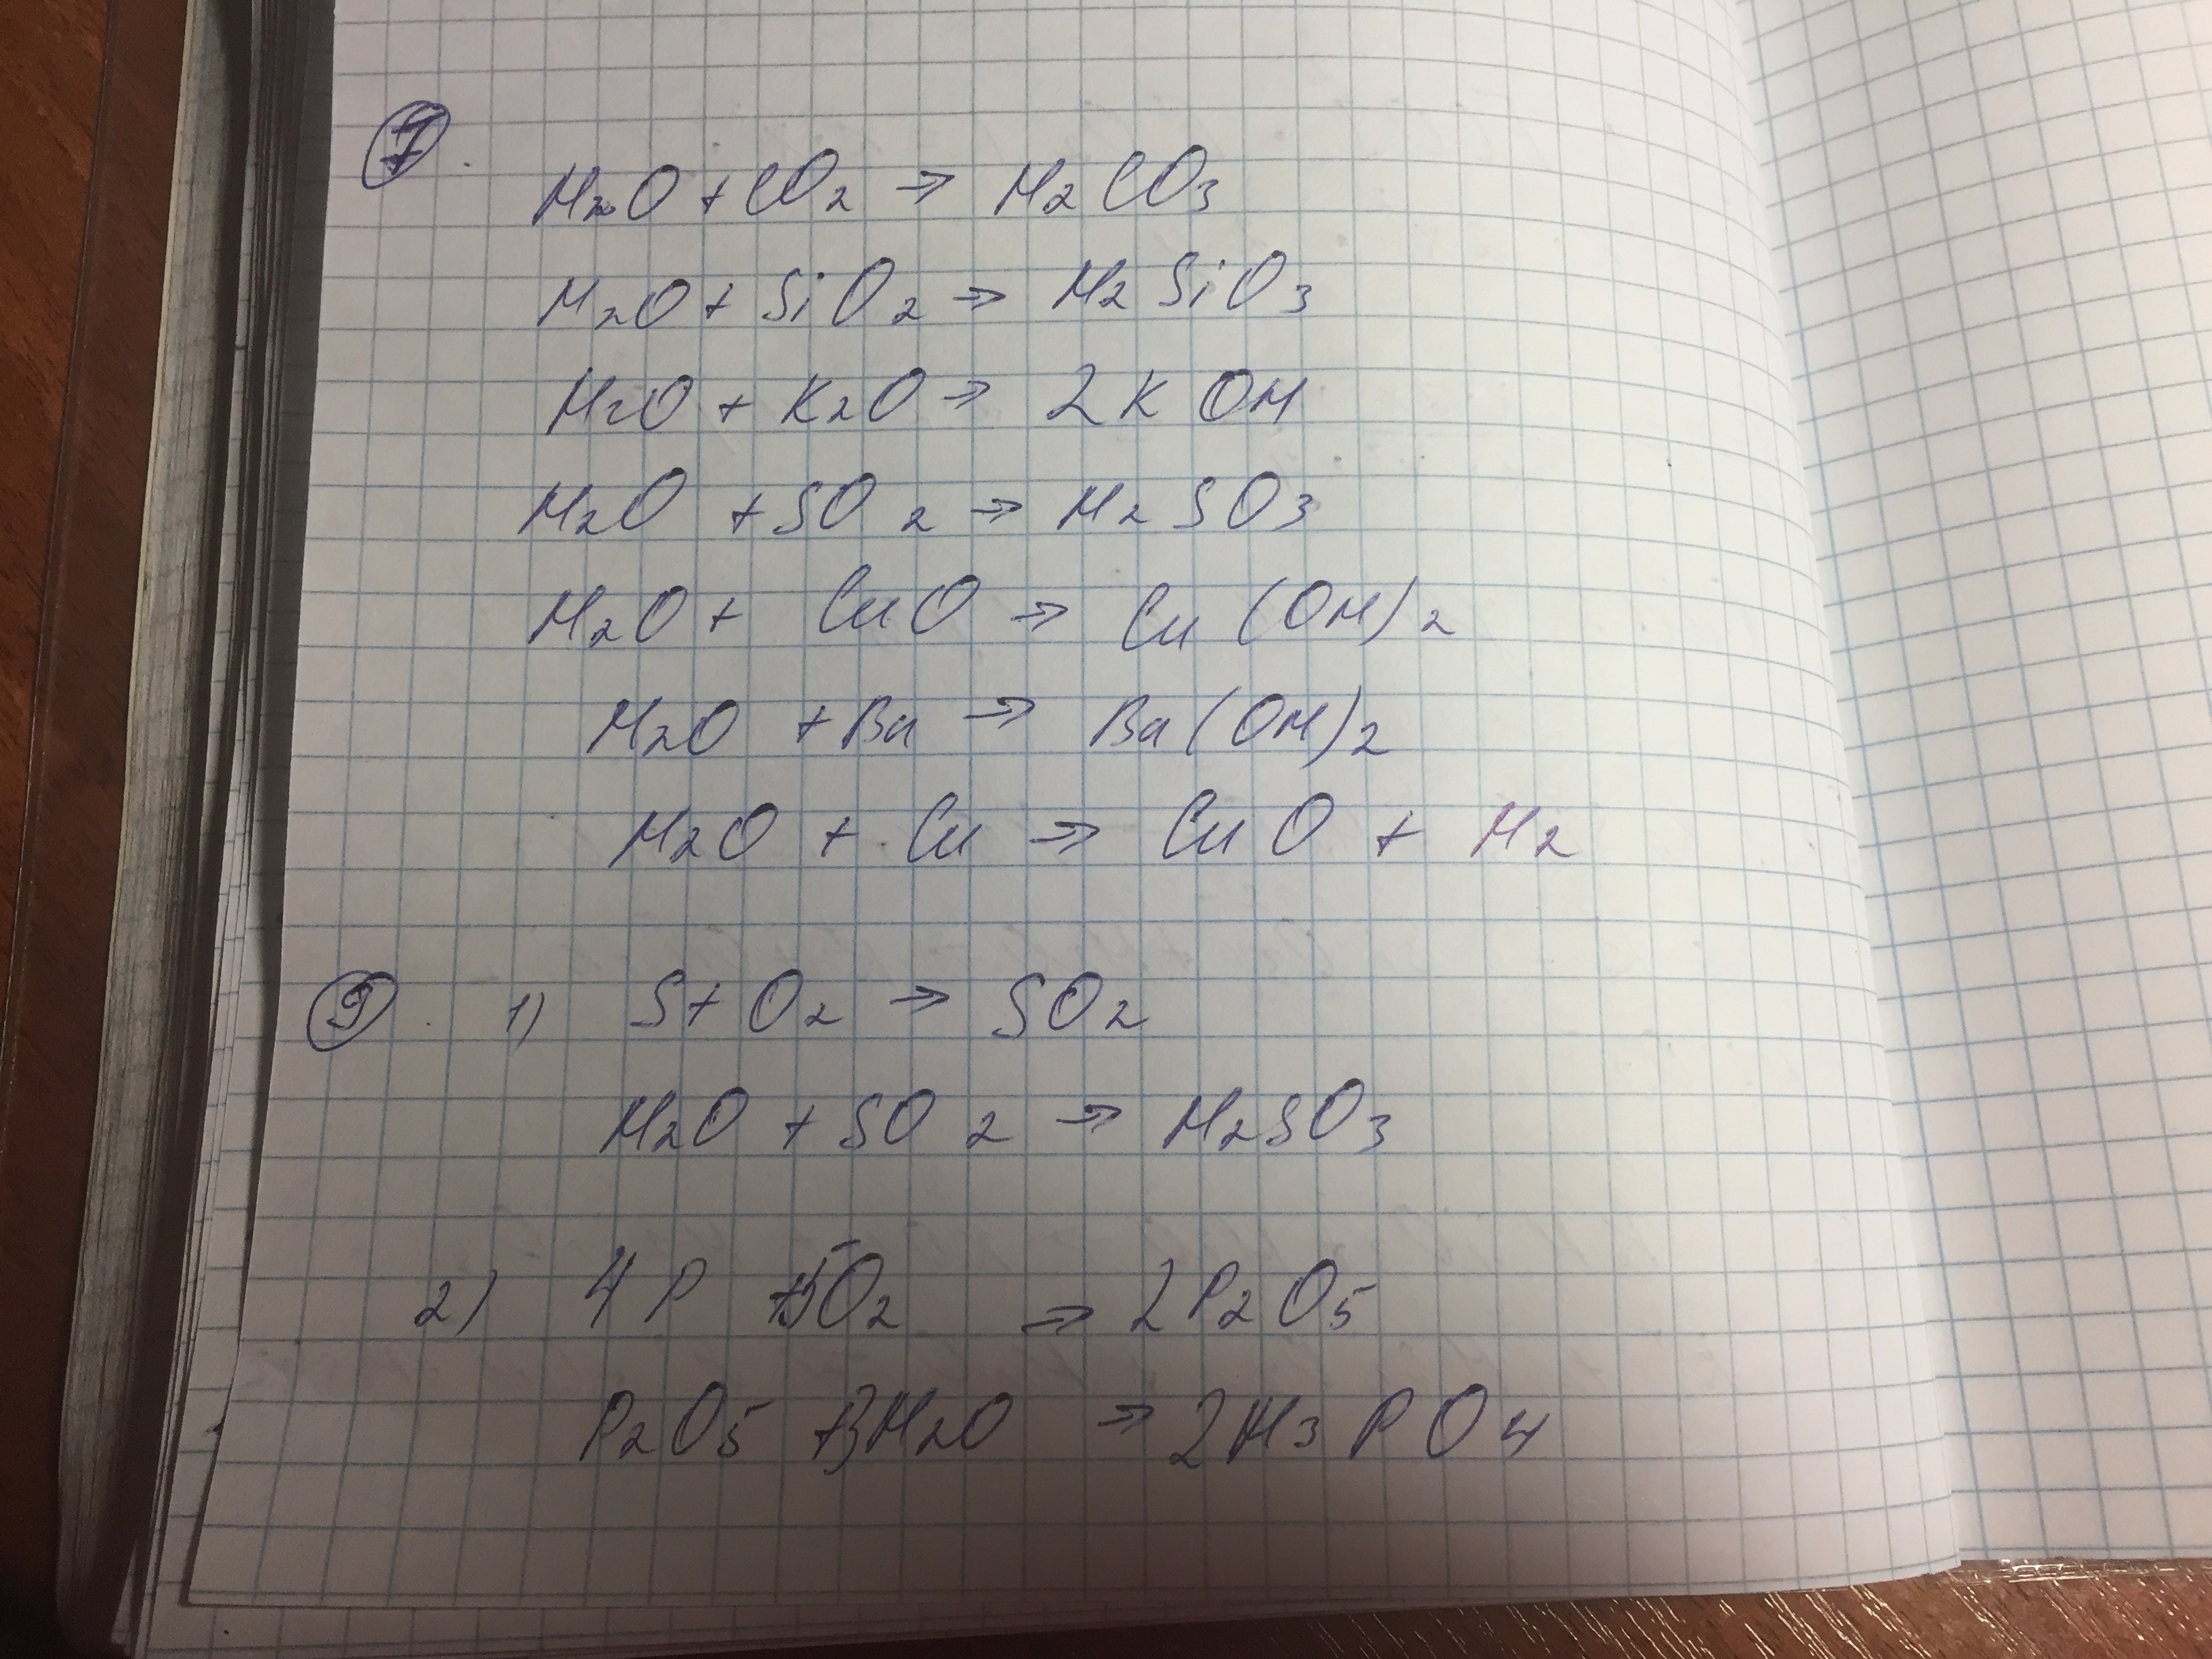 7.
H₂O + CO₂ → H₂CO₃
H₂O + SiO₂ → H₂SiO₃
H₂O + K₂O → 2KOH
H₂O + SO₂ → H₂SO₃
H₂O + CuO → Cu(OH)₂
H₂O + Ba → Ba(OH)₂
H₂O + Cu → CuO + H₂
9. 1) S + O₂ → SO₂
H₂O + SO₂ → H₂SO₃
2) 4P + 5O₂ → 2P₂O₅
P₂O₅ + 3H₂O → 2H₃PO₄